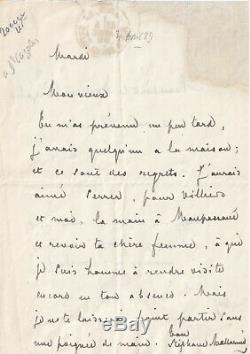 Mardi
Mon vieux
Tu m'as prévenu un peu tard,
j'aurais quelqu'un à la maison;
et ce sont des regrets. J'aurais
aimé serrer, pour Villiers
et moi, la main à Maupassant
et revoir ta chère femme, à qui
je suis homme à rendre visite
encore en ton absence. Mais
je ne te laisserai point partir sans
une poignée de main. Ton
Stéphane Mallarmé